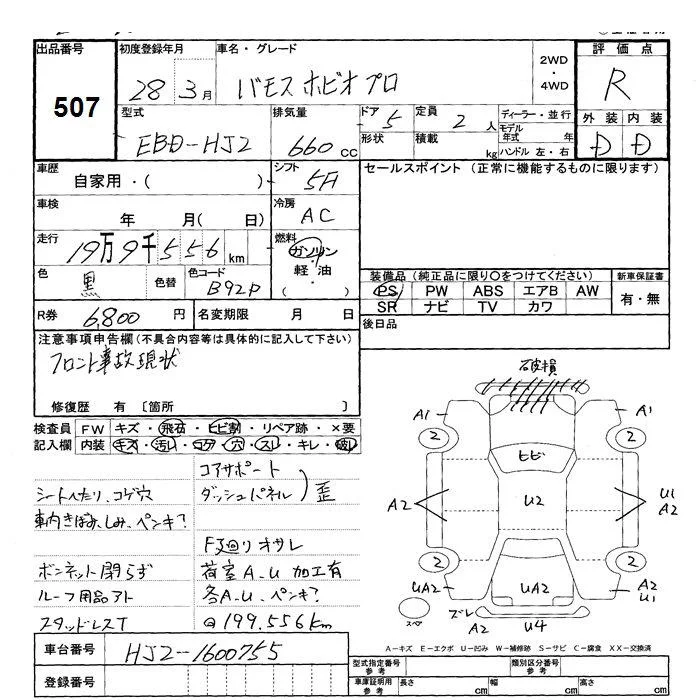 出品番号 初度登録年月 車名・グレード 評価点
507
28 3月 バモス ホビオプロ 2WD・4WD R
型式 排気量 ドア 5 定員 2人 ディーラー・並行 外装 内装
EBD-HJ2 660cc 形状 積載 kg モデル年式 年 ハンドル 左・右 D D
車歴 シフト セールスポイント (正常に機能するものに限ります)
自家用・( ) 5A
車検 冷房
年 月( 日) AC
走行 燃料
19万9千556km ガソリン
軽・油
( )
色 黒 色替 色コード B92P
装備品(純正品に限り〇をつけてください) 新車保証書
PS PW ABS エアB AW 有・無
SR ナビ TV カワ
R券 6,800円 名変期限 月 日
後日品
注意事項申告欄(不具合内容等は具体的に記入して下さい)
フロント事故現状
修復歴 有 〔箇所 〕
検査員 FW キズ・飛石・ヒビ割・リペア跡・×要
記入欄 内装 キズ・汚レ・コゲ・穴・スレ・キレ・破レ
コアサポート
ダッシュパネル)歪
シートへたり、コゲ穴
車内きばみ、しみ、ペンキ?
F廻りオサレ
ボンネット閉らず 荷室A、U 加工有
ルーフ用品アト 各A、U、ペンキ?
スタッドレスT @199,556km
車台番号 HJ2-1600755
登録番号
破損
A1 A1
2 2
ヒビ
A2 U2 U1
A2
2 2
UA2 UA2 A2
U1
スペ ズレ
A2 U4
A-キズ E-エクボ U-凹み W-補修跡 S-サビ C-腐食 XX-交換済
型式指定番号 参考 類別区分番号 参考
車庫証明用 参考 長さ cm 幅 cm 高さ cm